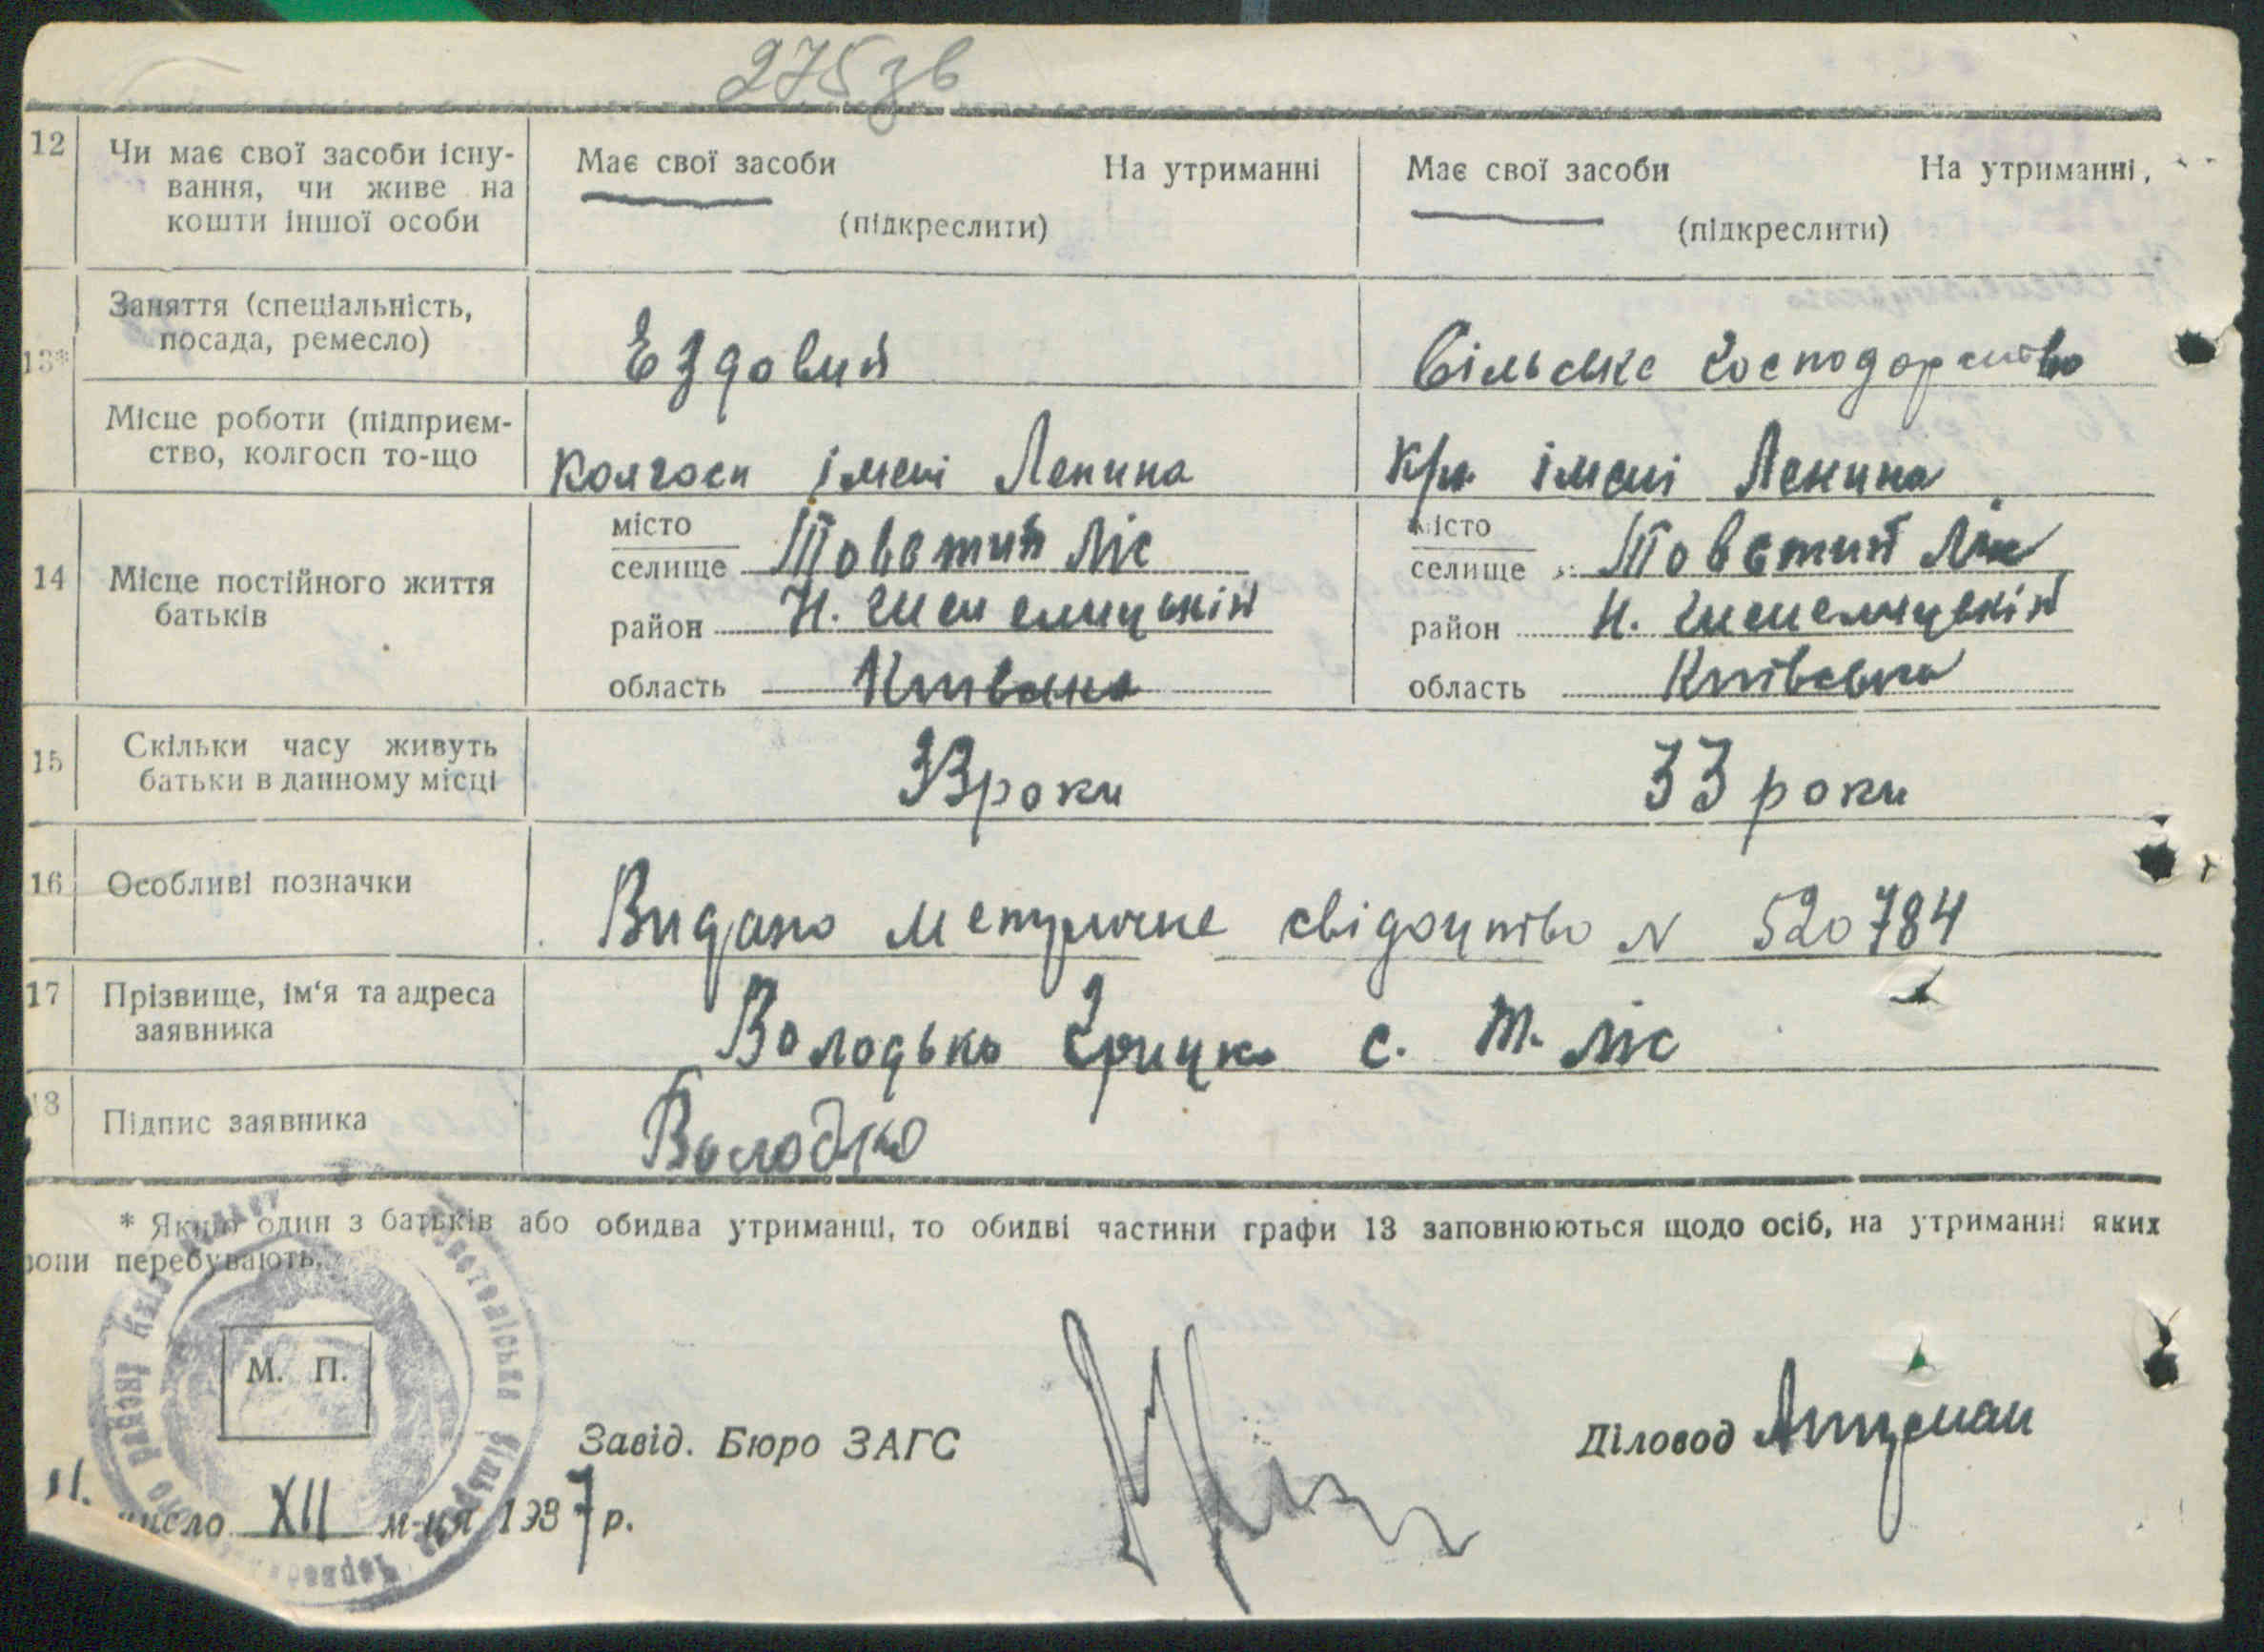 275 зв
12 Чи має свої засоби існу- Має свої засоби На утриманні Має свої засоби На утриманні,
вання, чи живе на
кошти іншої особи (підкреслити) (підкреслити)
Заняття (спеціальність,
посада, ремесло) Ездовий Сільське Господарство
13*
Місце роботи (підприєм-
ство, колгосп то-що Колгосп імені Ленина К/г імені Ленина
місто місто
селище Товстий Ліс селище Товстий Ліс
14 Місце постійного життя
батьків район Н. Шепелицькій район Н. Шепелицькій
область Київська область Київська
15 Скільки часу живуть
батьки в данному місці 33 роки 33 роки
16 Особливі позначки Видано метричне свідоцтво N 520784
17 Прізвище, ім‘я та адреса
заявника Володько Грицко с. Т. Ліс
18 Підпис заявника Володко
* Якщо один з батьків або обидва утриманці, то обидві частини графи 13 заповнюються щодо осіб, на утриманні яких
вони перебувають.
М. П.
Завід. Бюро ЗАГС Діловод
11. число XII м-ця 1937 р.